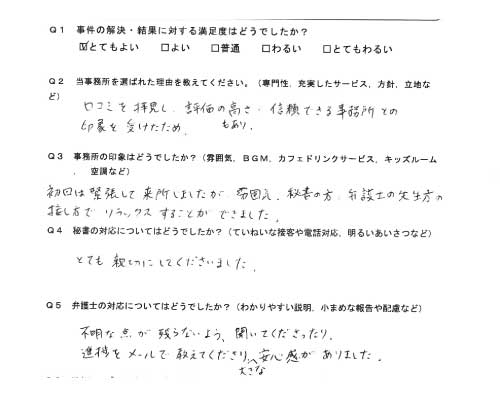 Q1 事件の解決・結果に対する満足度はどうでしたか?
☑とてもよい □よい □普通 □わるい □とてもわるい
Q2 当事務所を選ばれた理由を教えてください。(専門性、充実したサービス、方針、立地な
ど)
口コミを拝見し、評価の高さもあり、信頼できる事務所との
印象を受けたため。
Q3 事務所の印象はどうでしたか?(雰囲気、BGM、カフェドリンクサービス、キッズルーム
、空調など)
初回は緊張して来所しましたが、雰囲気、秘書の方、弁護士の先生方の
接し方で リラックスすることができました。
Q4 秘書の対応についてはどうでしたか?(ていねいな接客や電話対応、明るいあいさつなど)
とても親切にしてくださいました。
Q5 弁護士の対応についてはどうでしたか?(わかりやすい説明、小まめな報告や配慮など)
不明な点が残らないよう、聞いてくださったり、
進捗をメールで教えてくださり、大きな安心感がありました。